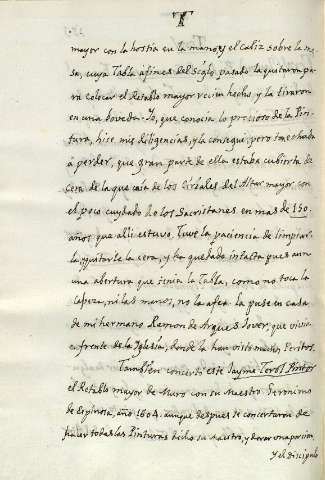 T
mayor con la hostia en la mano, y el caliz sobre la me-
sa, cuya Tabla a fines del siglo pasado la quitaron pa-
ra colocar el Retablo mayor recien hecho, y la tiraron
en una boveda: Yo, que conocia lo precioso de la Pin-
tura, hice mis diligencias, y la consegui, pero tan echada
à perder, que gran parte de ella estaba cubierta de
cera de la que caia de los Cirdales del Altar mayor, con
el poco cuydado de los Sacristanes en mas de 150.
años que alli estuvo, Tuve la paciencia de limpiar-
la, y quitarle la cera, y ha quedado intacta pues aun
una abertura que tenia la Tabla, como no toca la
cabeza, ni las manos, no la afea: la puse en casa
de mi hermano Ramon de Arques Jover, que vivia
enfrente de la Iglesia, donde la han visto muchos Peritos.
Tambien concertó este Jayme Terol Pintor
el Retablo mayor de Muro con su Maestro Geronimo
de Espinosa, año 1604. aunque despues se concertaron de
hacer todas las Pinturas dicho su maestro, y dorar una porcion,
y el Discipulo